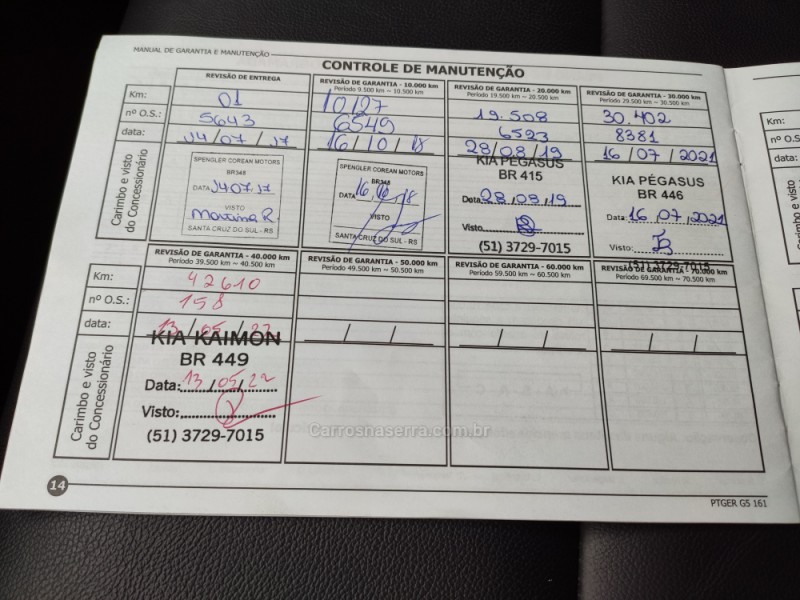 MANUAL DE GARANTIA E MANUTENÇÃO
CONTROLE DE MANUTENÇÃO
REVISÃO DE ENTREGA
Km: 01
nº O.S.: 5643
data: 14/07/17
Carimbo e visto
do Concessionário
SPENGLER COREAN MOTORS
BR348
DATA 1407.17
VISTO
SANTA CRUZ DO SUL - RS
REVISÃO DE GARANTIA - 10.000 km
Período 9.500 km ~ 10.500 km
10127
6549
16/10/18
SPENGLER COREAN MOTORS
BR348
DATA 16/10/18
VISTO
SANTA CRUZ DO SUL - RS
REVISÃO DE GARANTIA - 20.000 km
Período 19.500 km ~ 20.500 km
19.508
6593
28/08/19
KIA PEGASUS
BR 415
Data 28.08.19
Visto
(51) 3729-7015
REVISÃO DE GARANTIA - 30.000 km
Período 29.500 km ~ 30.500 km
30.402
8381
16/07/2021
KIA PÉGASUS
BR 446
Data: 16 07 2021
Visto:
(51) 3729-7015
REVISÃO DE GARANTIA - 40.000 km
Período 39.500 km ~ 40.500 km
Km: 42610
nº O.S.: 158
data: 13/05/22
Carimbo e visto
do Concessionário
KIA KAIMON
BR 449
Data: 13/05/22
Visto:
(51) 3729-7015
REVISÃO DE GARANTIA - 50.000 km
Período 49.500 km ~ 50.500 km
/ /
REVISÃO DE GARANTIA - 60.000 km
Período 59.500 km ~ 60.500 km
/ /
REVISÃO DE GARANTIA - 70.000 km
Período 69.500 km ~ 70.500 km
/ /
Carrosnaserra.com.br
14
PTGER G5 161
Km:
nº O.S
data: